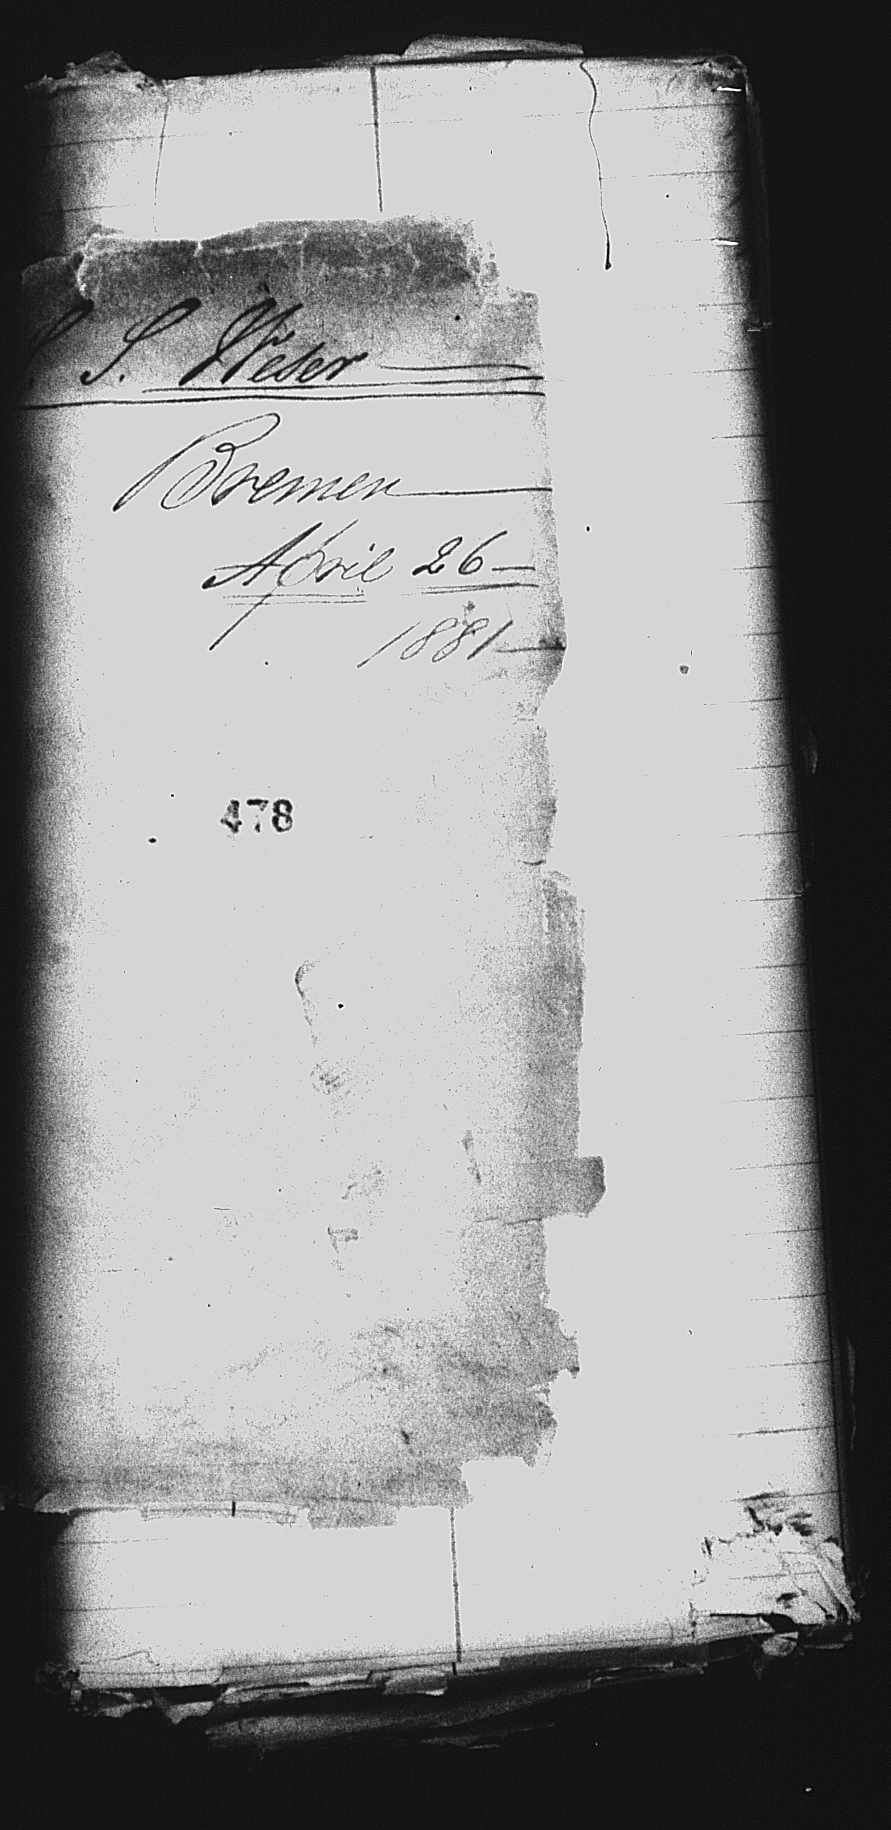 S. S. Weser
Bremen
April 26
1881
478